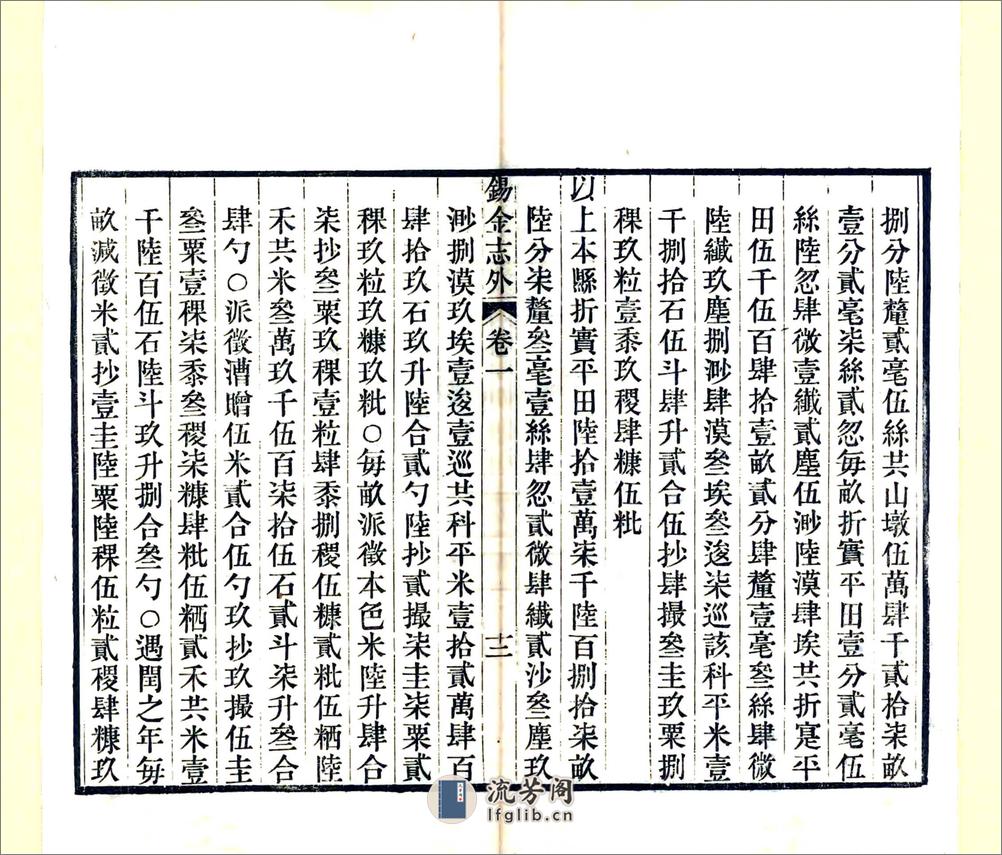 捌分陸釐貳毫伍絲共山墩伍萬肆千貳拾柒畝
壹分貳毫柒絲貳忽每畝折實平田壹分貳毫伍
絲陸忽肆微壹纖貳塵伍渺陸漠肆埃共折寔平
田伍千伍百肆拾壹畝貳分肆釐壹毫叄絲肆微
陸纖玖塵捌渺肆漠叄埃叄逡柒巡該科平米壹
千捌拾石伍斗肆升貳合伍抄肆撮叄圭玖粟捌
稞玖粒壹黍玖稷肆糠伍粃
以上本縣折實平田陸拾壹萬柒千陸百捌拾柒畝
陸分柒釐叄毫壹絲肆忽貳微肆纖貳沙叄塵玖
錫金志外 卷一 十三
渺捌漠玖埃壹逡壹巡共科平米壹拾貳萬肆百
肆拾玖石玖升陸合貳勺陸抄貳撮柒圭柒粟貳
稞玖粒玖糠玖粃○每畝派徵本色米陸升肆合
柒抄叄粟玖稞壹粒肆黍捌稷伍糠貳粃伍粞陸
禾共米叄萬玖千伍百柒拾伍石貳斗柒升叄合
肆勺○派徵漕贈伍米貳合伍勺玖抄玖撮伍圭
叄粟壹稞柒黍叄稷柒糠肆粃伍粞貳禾共米壹
千陸百伍石陸斗玖升捌合叄勺○遇閏之年每
畝減徵米貳抄壹圭陸粟陸稞伍粒貳稷肆糠玖
流芳阁
lfglib.cn